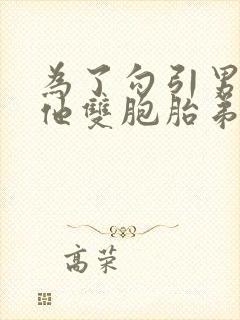 為了勾引男
他雙胞胎弟
高荣